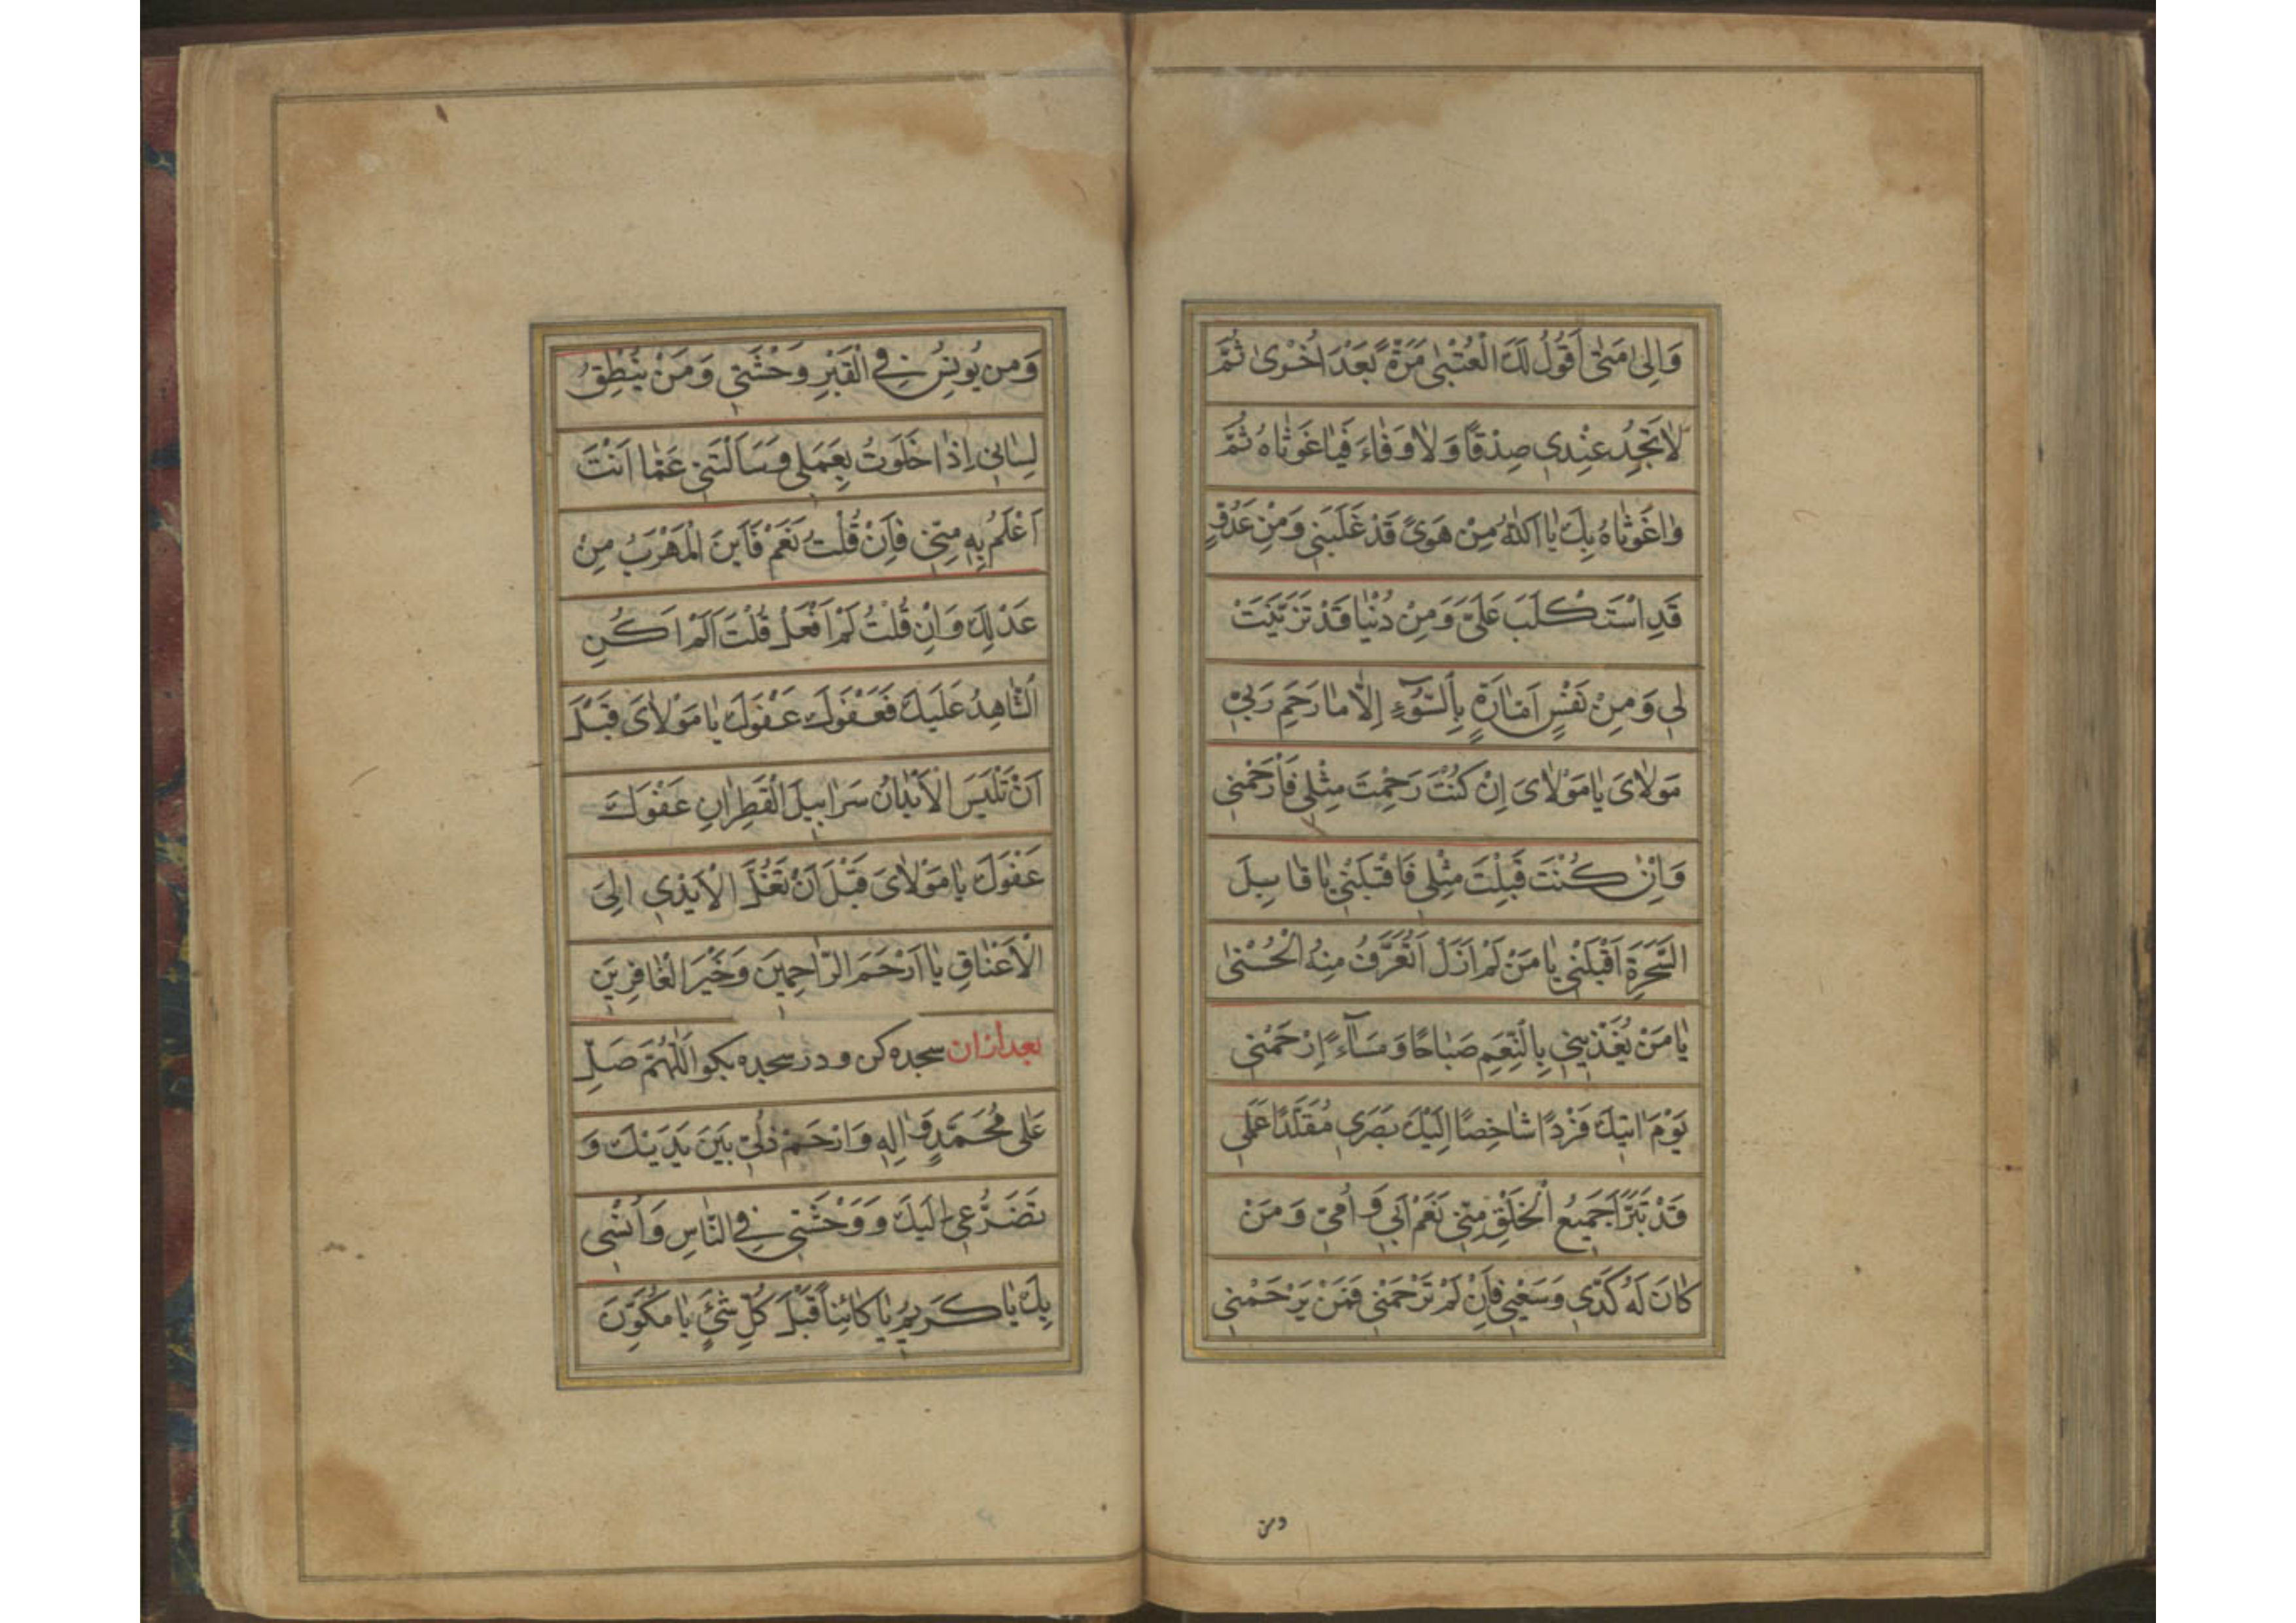 وَاِلىٰ مَتىٰ اَقُولُ لَكَ الْعُتْبىٰ مَرَّةً بَعْدَ اُخْرىٰ ثُمَّ
لاٰ تَجِدُ عِنْدِی صِدْقًا وَلاٰ وَفٰاءَ فَیٰا غَوْثٰاهُ ثُمَّ
وٰا غَوْثٰاهُ بِكَ یٰا اَللّٰهُ مِنْ هَوىً قَدْ غَلَبَنِی وَمِنْ عَدُوٍّ
قَدِ اسْتَكْلَبَ عَلَیَّ وَمِنْ دُنْیٰا قَدْ تَزَیَّنَتْ
لِی وَمِنْ نَفْسٍ اَمّٰارَةٍ بِالسُّوۤءِ اِلّٰا مٰا رَحِمَ رَبِّی
مَوْلاٰیَ یٰا مَوْلاٰیَ اِنْ كُنْتَ رَحِمْتَ مِثْلِی فَارْحَمْنِی
وَاِنْ كُنْتَ قَبِلْتَ مِثْلِی فَاقْبَلْنِی یٰا قٰابِلَ
السَّحَرَةِ اَقْبَلْنِی یٰا مَنْ لَمْ اَزَلْ اَتَعَرَّفُ مِنْهُ الْحُسْنىٰ
یٰا مَنْ یُغَذِّینِی بِالنِّعَمِ صَبٰاحًا وَمَسٰآءً اِرْحَمْنِی
یَوْمَ اٰتِیكَ فَرْدًا شٰاخِصًا اِلَیْكَ بَصَرِی مُقَلَّدًا عَمَلِی
قَدْ تَبَرَّاَ جَمِیعُ الْخَلْقِ مِنِّی نَعَمْ اَبِی وَاُمِّی وَمَنْ
كٰانَ لَهُ كَدِّی وَسَعْیِی فَاِنْ لَمْ تَرْحَمْنِی فَمَنْ یَرْحَمُنِی
ومن
وَمَن یُونِسُ فِی الْقَبْرِ وَحْشَتِی وَمَنْ یُنْطِقُ
لِسٰانِی اِذٰا خَلَوْتُ بِعَمَلِی وَسَاَلْتَنِی عَمّٰا اَنْتَ
اَعْلَمُ بِهِ مِنِّی فَاِنْ قُلْتُ نَعَمْ فَاَیْنَ الْمَهْرَبُ مِنْ
عَدْلِكَ وَاِنْ قُلْتُ لَمْ اَفْعَلْ قُلْتَ اَلَمْ اَكُنِ
الشّٰاهِدُ عَلَیْكَ فَعَفْوَكَ عَفْوَكَ یٰا مَوْلاٰیَ قَبْلَ
اَنْ تَلْبَسَ الْاَبْدٰانُ سَرٰابِیلَ الْقَطِرٰانِ عَفْوَكَ
عَفْوَكَ یٰا مَوْلاٰیَ قَبْلَ اَنْ تُغَلَّ الْاَیْدِی اِلَى
الْاَعْنٰاقِ یٰا اَرْحَمَ الرّٰاحِمِینَ وَخَیْرَ الْغٰافِرِینَ
بعد ازان سجده كن و در سجده بكو اَللّٰهُمَّ صَلِّ
عَلىٰ مُحَمَّدٍ وَاٰلِهِ وَارْحَمْ ذُلِّی بَیْنَ یَدَیْكَ وَ
تَضَرُّعِی اِلَیْكَ وَوَحْشَتِی فِی النّٰاسِ وَاُنْسِی
بِكَ یٰا كَرِیمُ یٰا كٰائِنًا قَبْلَ كُلِّ شَیْءٍ یٰا مُكَوِّنَ